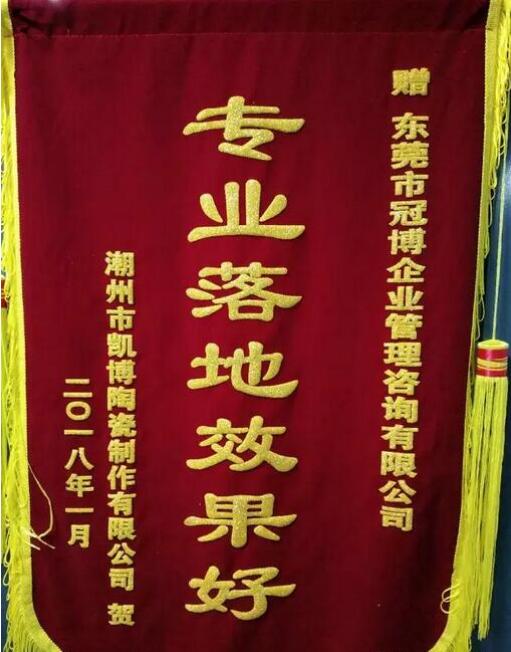 赠 东莞市冠博企业管理咨询有限公司
专业落地效果好
潮州市凯博陶瓷制作有限公司 贺
二〇一八年一月